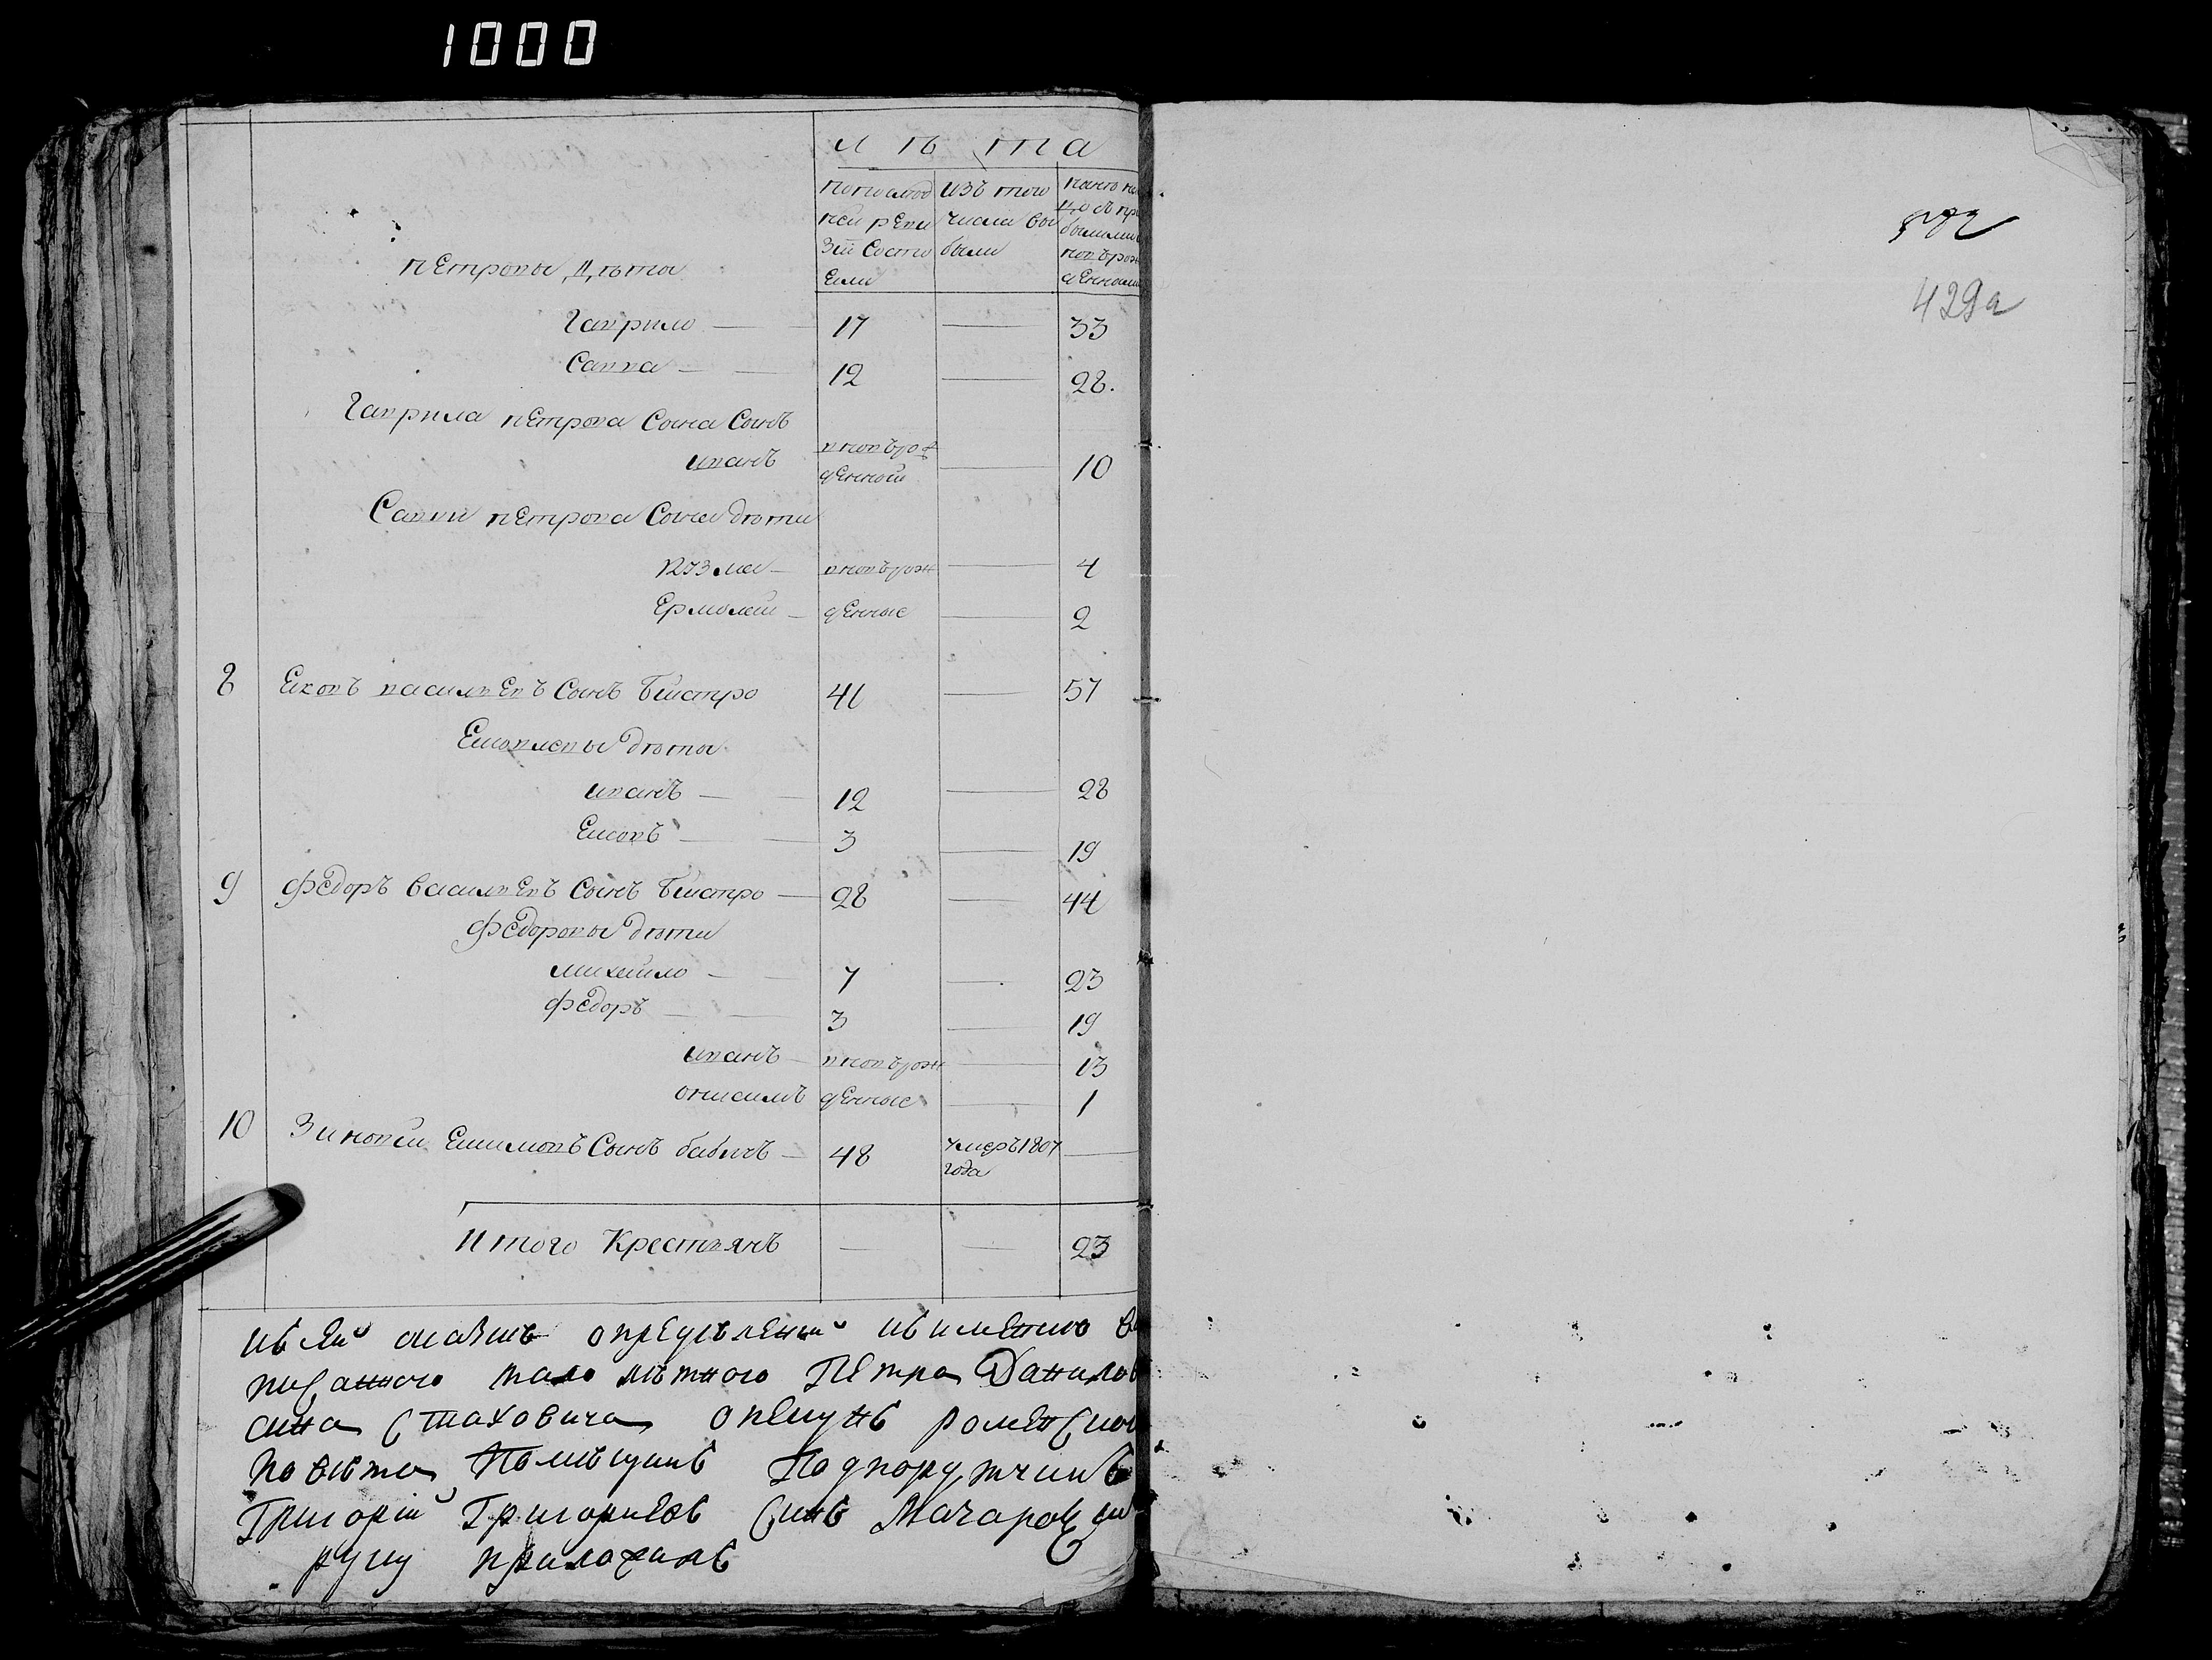 1000
лѣта
попослѣд
ней реви
зій состо
ели
изъ того
числа вы
были
нынѣ на
лицо съ при
былыми и
новърож
денными
петровы дѣти
гаврило 17 33
Савва 12 28.
гаврила петрова Сына Сынъ
иванъ вновърож
денной 10
Саввы петрова Сына дѣти
козма вновърож 4
Ермолай денные 2
8 Ековъ васильевъ Сынъ Быстро 41 57
Ековлевы дѣти
иванъ 12 28
Ековъ 3 19
9 федоръ васильевъ Сынъ Быстро 28 44
федоровы дѣти
михайло 7 23
федоръ 3 19
иванъ вновърож 13
онисимъ денные 1
10 Зиновей Екимовъ Сынъ бабичъ 48 умеръ 1807
года
Итого Крестьянъ 23
къ сей сказкѣ определений къ имению
писанного мало лѣтного Петра Данилов
сина Стаховича опекунъ роменског
повѣта Помѣщикъ Подпоручикъ
Григорій Григориевъ Синъ
руку приложилъ
429а